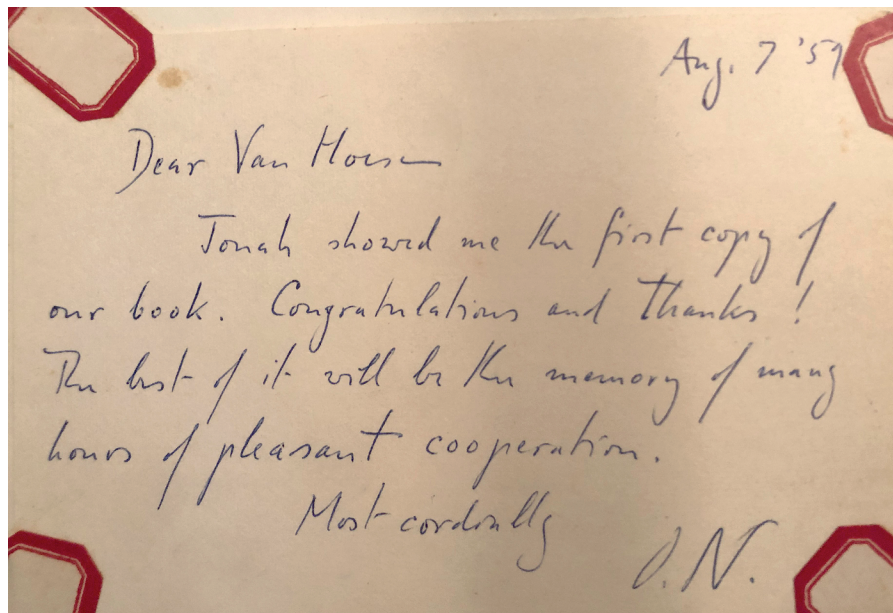 Aug. 7 '59
Dear Van Hoesen
Jonah showed me the first copy of
our book. Congratulations and thanks!
The best of it will be the memory of many
hours of pleasant cooperation.
Most cordially
O. N.